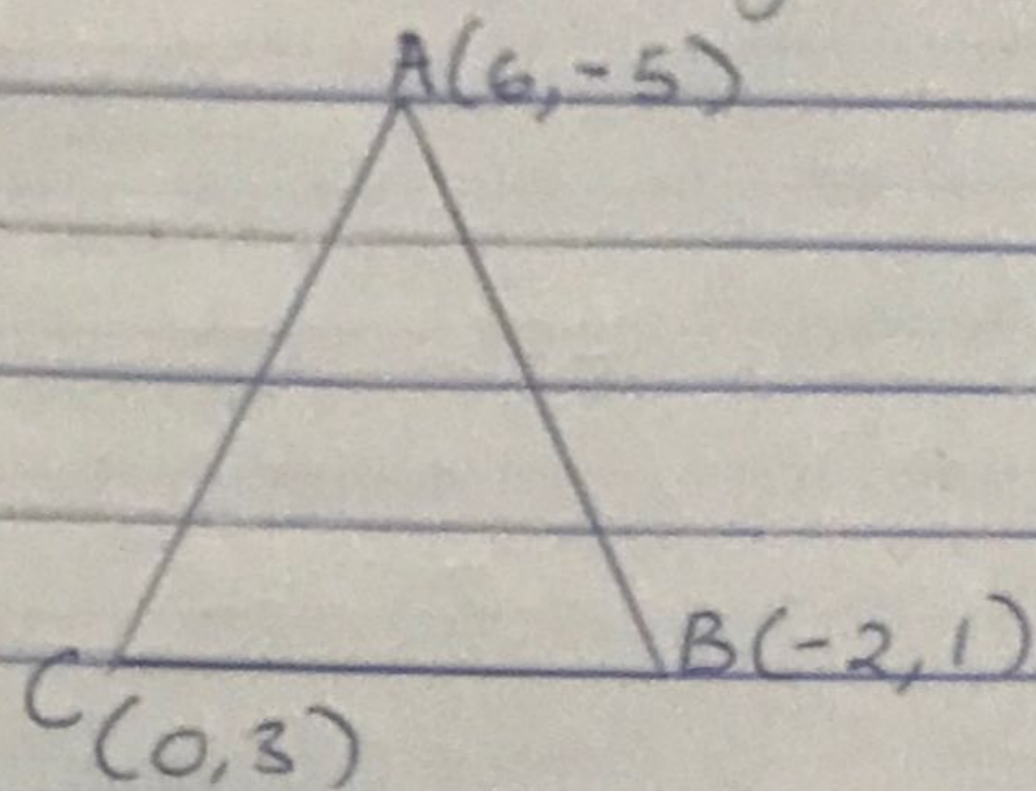 A(6,-5)
B(-2,1)
C(0,3)